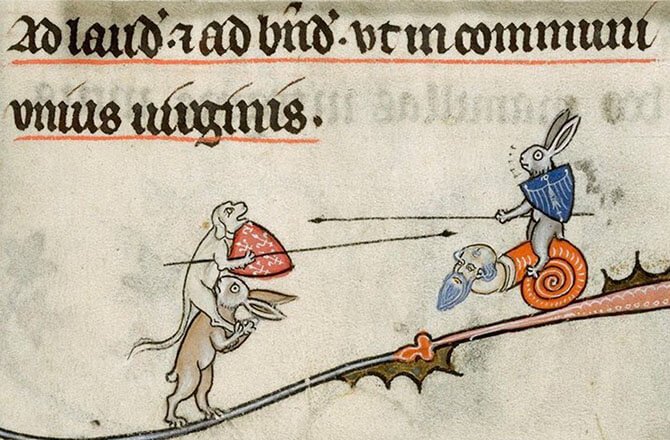 Ad laud̾ ⁊ ad bn̄d̾. vt in communi
vnius uirginis.